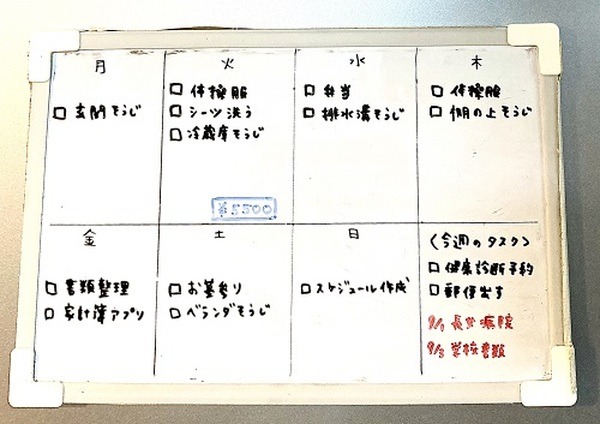 月
□ 玄関そうじ
火
□ 体操服
□ シーツ洗う
□ 冷蔵庫そうじ
¥5500
水
□ 弁当
□ 排水溝そうじ
木
□ 体操服
□ 棚の上そうじ
金
□ 書類整理
□ 家計簿アプリ
土
□ お墓参り
□ ベランダそうじ
日
□ スケジュール作成
〈今週のタスク〉
□ 健康診断予約
□ 郵便出す
病院
学校書類